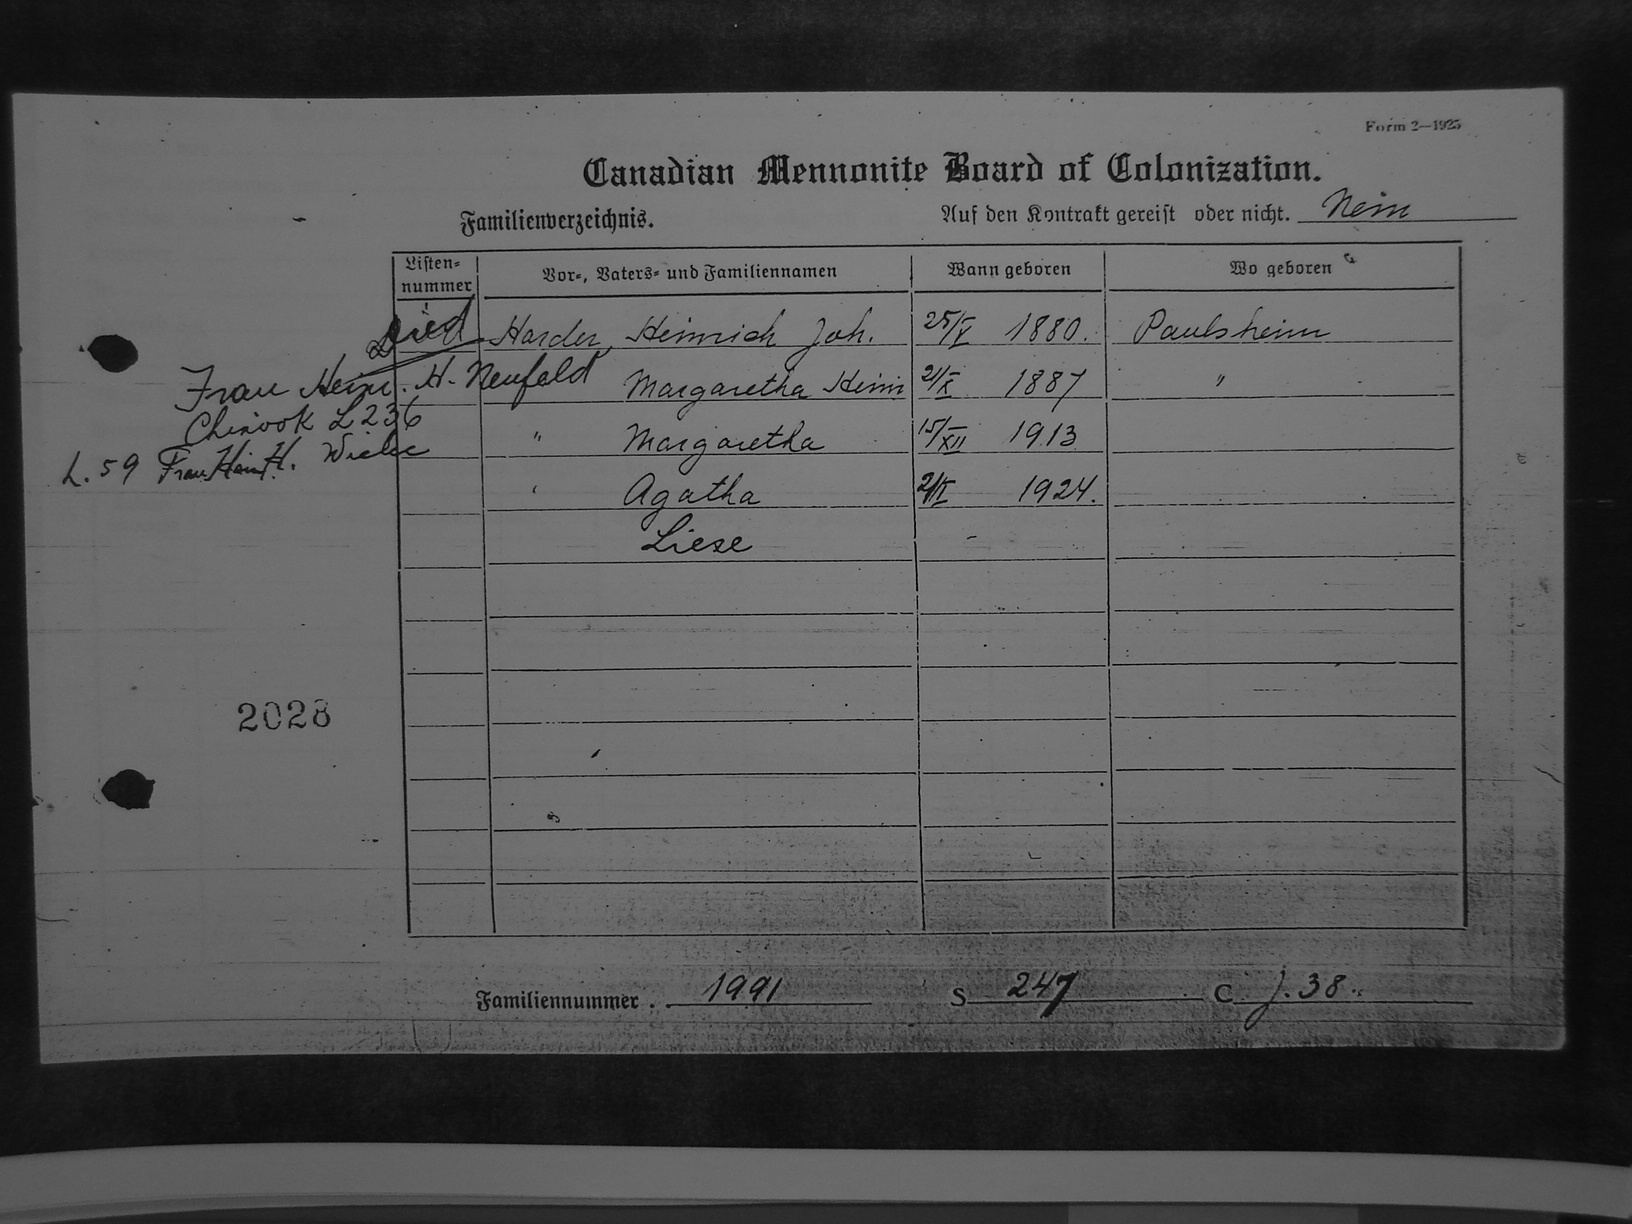 Form 2—1925
Canadian Mennonite Board of Colonization.
Familienverzeichnis. Auf den Kontrakt gereist oder nicht. Nein
Listen-nummer Vor-, Vaters- und Familiennamen Wann geboren Wo geboren
Died Harder, Heinrich Joh. 25/V 1880. Paulsheim
Frau Heinr. H. Neufeld Margaretha Heinr 21/X 1887 "
Chinook L 236
" Margaretha 15/XII 1913
L. 59 Frau Heinr. H. Wiebe
" Agatha 1924.
Liese -
2028
Familiennummer . . 1991 S 247 C J. 38.